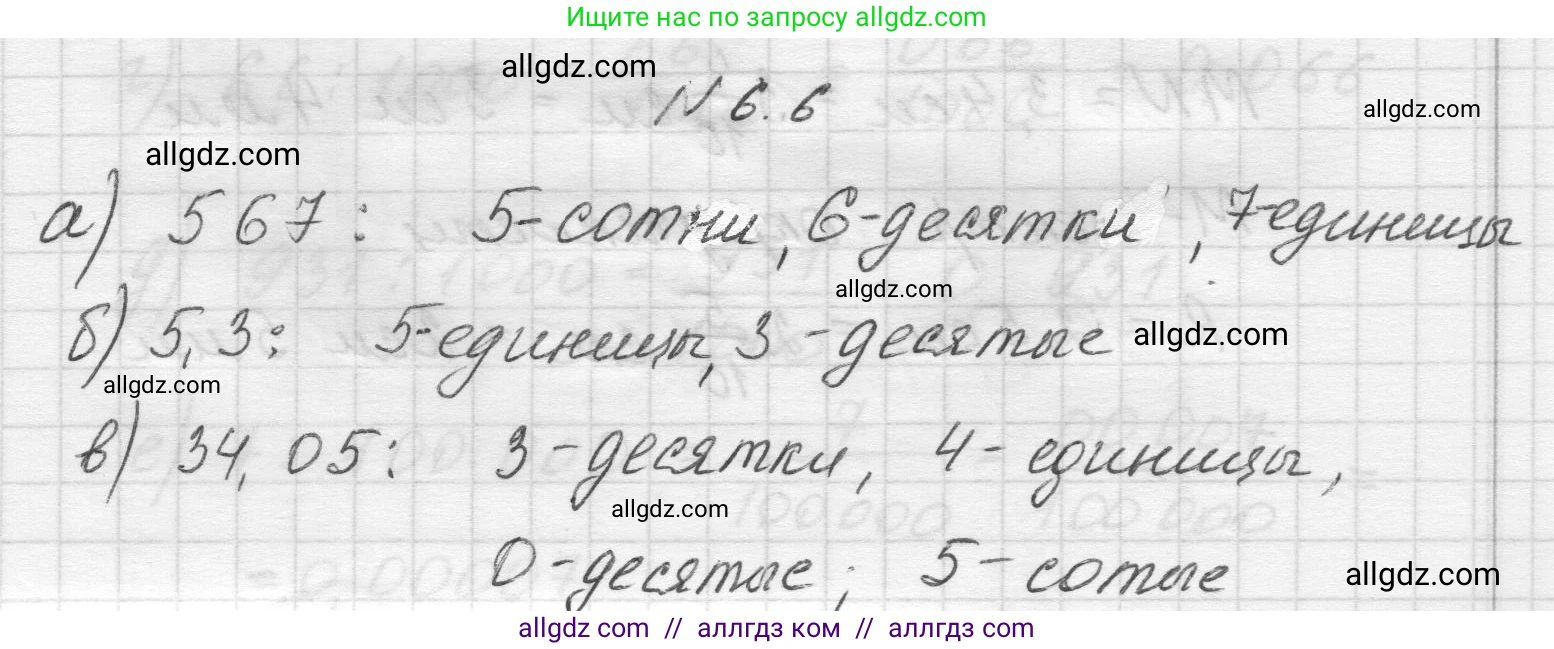 Ищите нас по запросу allgdz.com
allgdz.com
N 6.6
allgdz.com
allgdz.com
а) 567: 5-сотни, 6-десятки, 7-единицы
allgdz.com
б) 5,3: 5-единицы, 3 - десятые
allgdz.com
allgdz.com
в) 34,05: 3 - десятки, 4 - единицы,
allgdz.com
0 - десятые; 5 - сотые
allgdz.com
allgdz com // аллгдз ком // аллгдз com